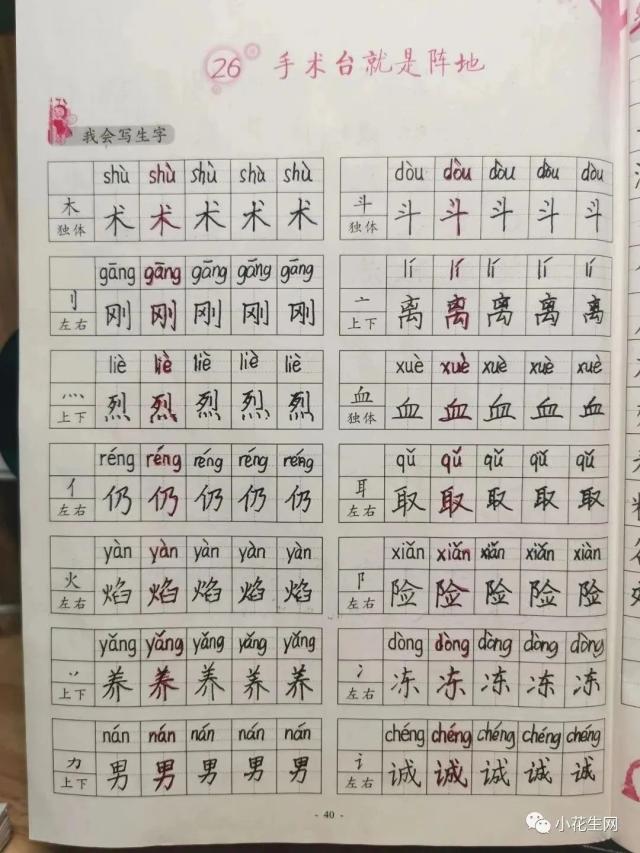 26 手术台就是阵地
我会写生字
shù shù shù shù shù
木 术 术 术 术 术
独体
dòu dòu dòu dòu dòu
斗 斗 斗 斗 斗 斗
独体
gāng gāng gāng gāng gāng
刂 刚 刚 刚 刚 刚
左右
lí lí lí lí lí
亠 离 离 离 离 离
上下
liè liè liè liè liè
灬 烈 烈 烈 烈 烈
上下
xuè xuè xuè xuè xuè
血 血 血 血 血 血
独体
réng réng réng réng réng
亻 仍 仍 仍 仍 仍
左右
qǔ qǔ qǔ qǔ qǔ
耳 取 取 取 取 取
左右
yàn yàn yàn yàn yàn
火 焰 焰 焰 焰 焰
左右
xiǎn xiǎn xiǎn xiǎn xiǎn
阝 险 险 险 险 险
左右
yǎng yǎng yǎng yǎng yǎng
丷 养 养 养 养 养
上下
dòng dòng dòng dòng dòng
冫 冻 冻 冻 冻 冻
左右
nán nán nán nán nán
力 男 男 男 男 男
上下
chéng chéng chéng chéng chéng
讠 诚 诚 诚 诚 诚
左右
- 40 -
小花生网